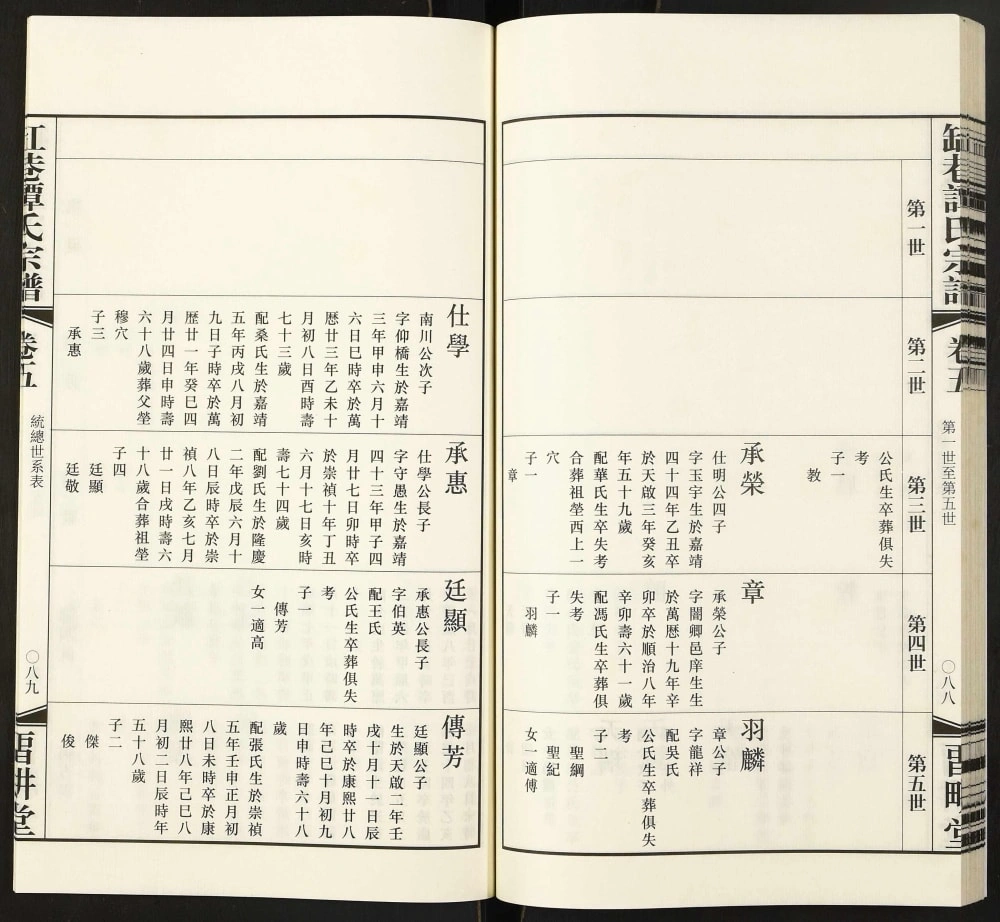 巷譚氏宗譜
卷五
第一世至第五世
〇八八
堂
第一世
第二世
第三世
公氏生卒葬俱失
考
子一
教
承榮
仕明公四子
字玉宇生於嘉靖
四十四年乙丑卒
於天啟三年癸亥
年五十九歲
配華氏生卒失考
合葬祖塋西上一
穴
子一
章
第四世
章
承榮公子
字闇卿邑庠生生
於萬曆十九年辛
卯卒於順治八年
辛卯壽六十一歲
配馮氏生卒葬俱
失考
子一
羽麟
第五世
羽麟
章公子
字龍祥
配吳氏
公氏生卒葬俱失
考
子二
聖綱
聖紀
女一適傅
仕學
南川公次子
字仰橋生於嘉靖
三年甲申六月十
六日巳時卒於萬
曆廿三年乙未十
月初八日酉時壽
七十三歲
配桑氏生於嘉靖
五年丙戌八月初
九日子時卒於萬
歷廿一年癸巳四
月廿四日申時壽
六十八歲葬父塋
穆穴
子三
承惠
承惠
仕學公長子
字守愚生於嘉靖
四十三年甲子四
月廿七日卯時卒
於崇禎十年丁丑
六月十七日亥時
壽七十四歲
配劉氏生於隆慶
二年戊辰六月十
八日辰時卒於崇
禎八年乙亥七月
廿一日戌時壽六
十八歲合葬祖塋
子四
廷顯
廷敬
廷顯
承惠公長子
字伯英
配王氏
公氏生卒葬俱失
考
子一
傳芳
女一適高
傳芳
廷顯公子
生於天啟二年壬
戌十月十一日辰
時卒於康熙廿八
年己巳十月初九
日申時壽六十八
歲
配張氏生於崇禎
五年壬申正月初
八日未時卒於康
熙廿八年己巳八
月初二日辰時年
五十八歲
子二
傑
俊
巷譚氏宗譜
卷五
統總世系表
〇八九
耕堂